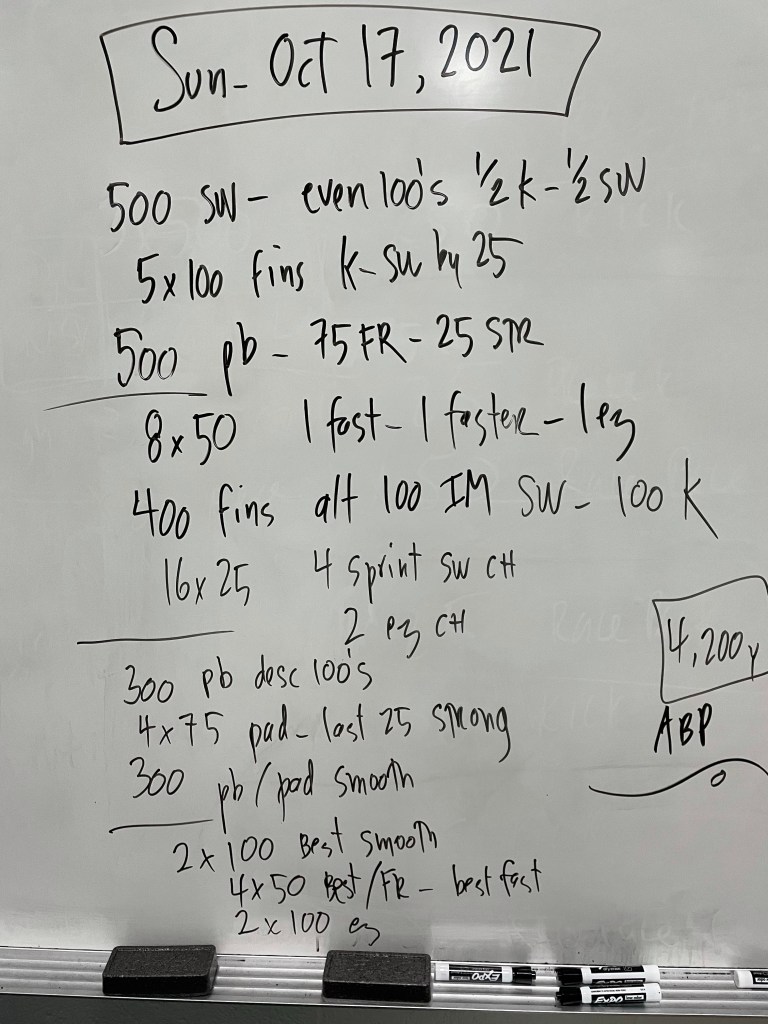 Sun- Oct 17, 2021
500 SW - even 100's 1/2 K - 1/2 SW
5x100 fins K-SW by 25
500 pb - 75 FR - 25 STR
8x50 1 fast - 1 faster - 1 ez
400 fins alt 100 IM SW - 100 K
16x25 4 sprint sw CH
2 ez CH
300 pb desc 100's
4x75 pad - last 25 strong
300 pb/pad smooth
2x100 Best smooth
4x50 Best/FR - best fast
2x100 ez
4,200y
ABP
EXPO
EXPO